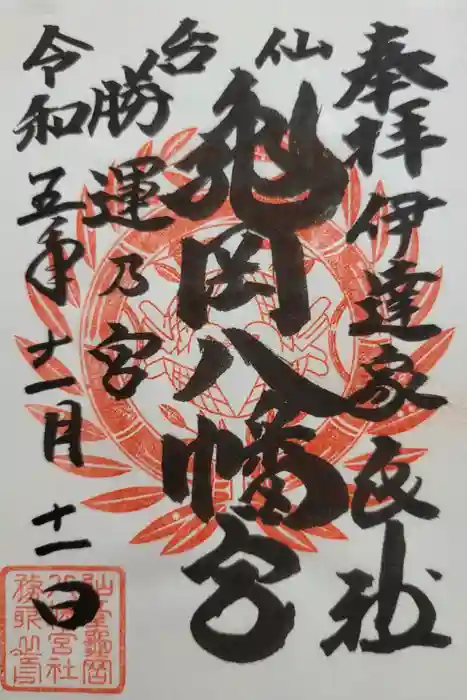 奉拝 伊達家氏社
仙台
亀岡八幡宮
勝運乃宮
令和五年十一月十一日
仙臺龜岡
八幡宮社
務所之印